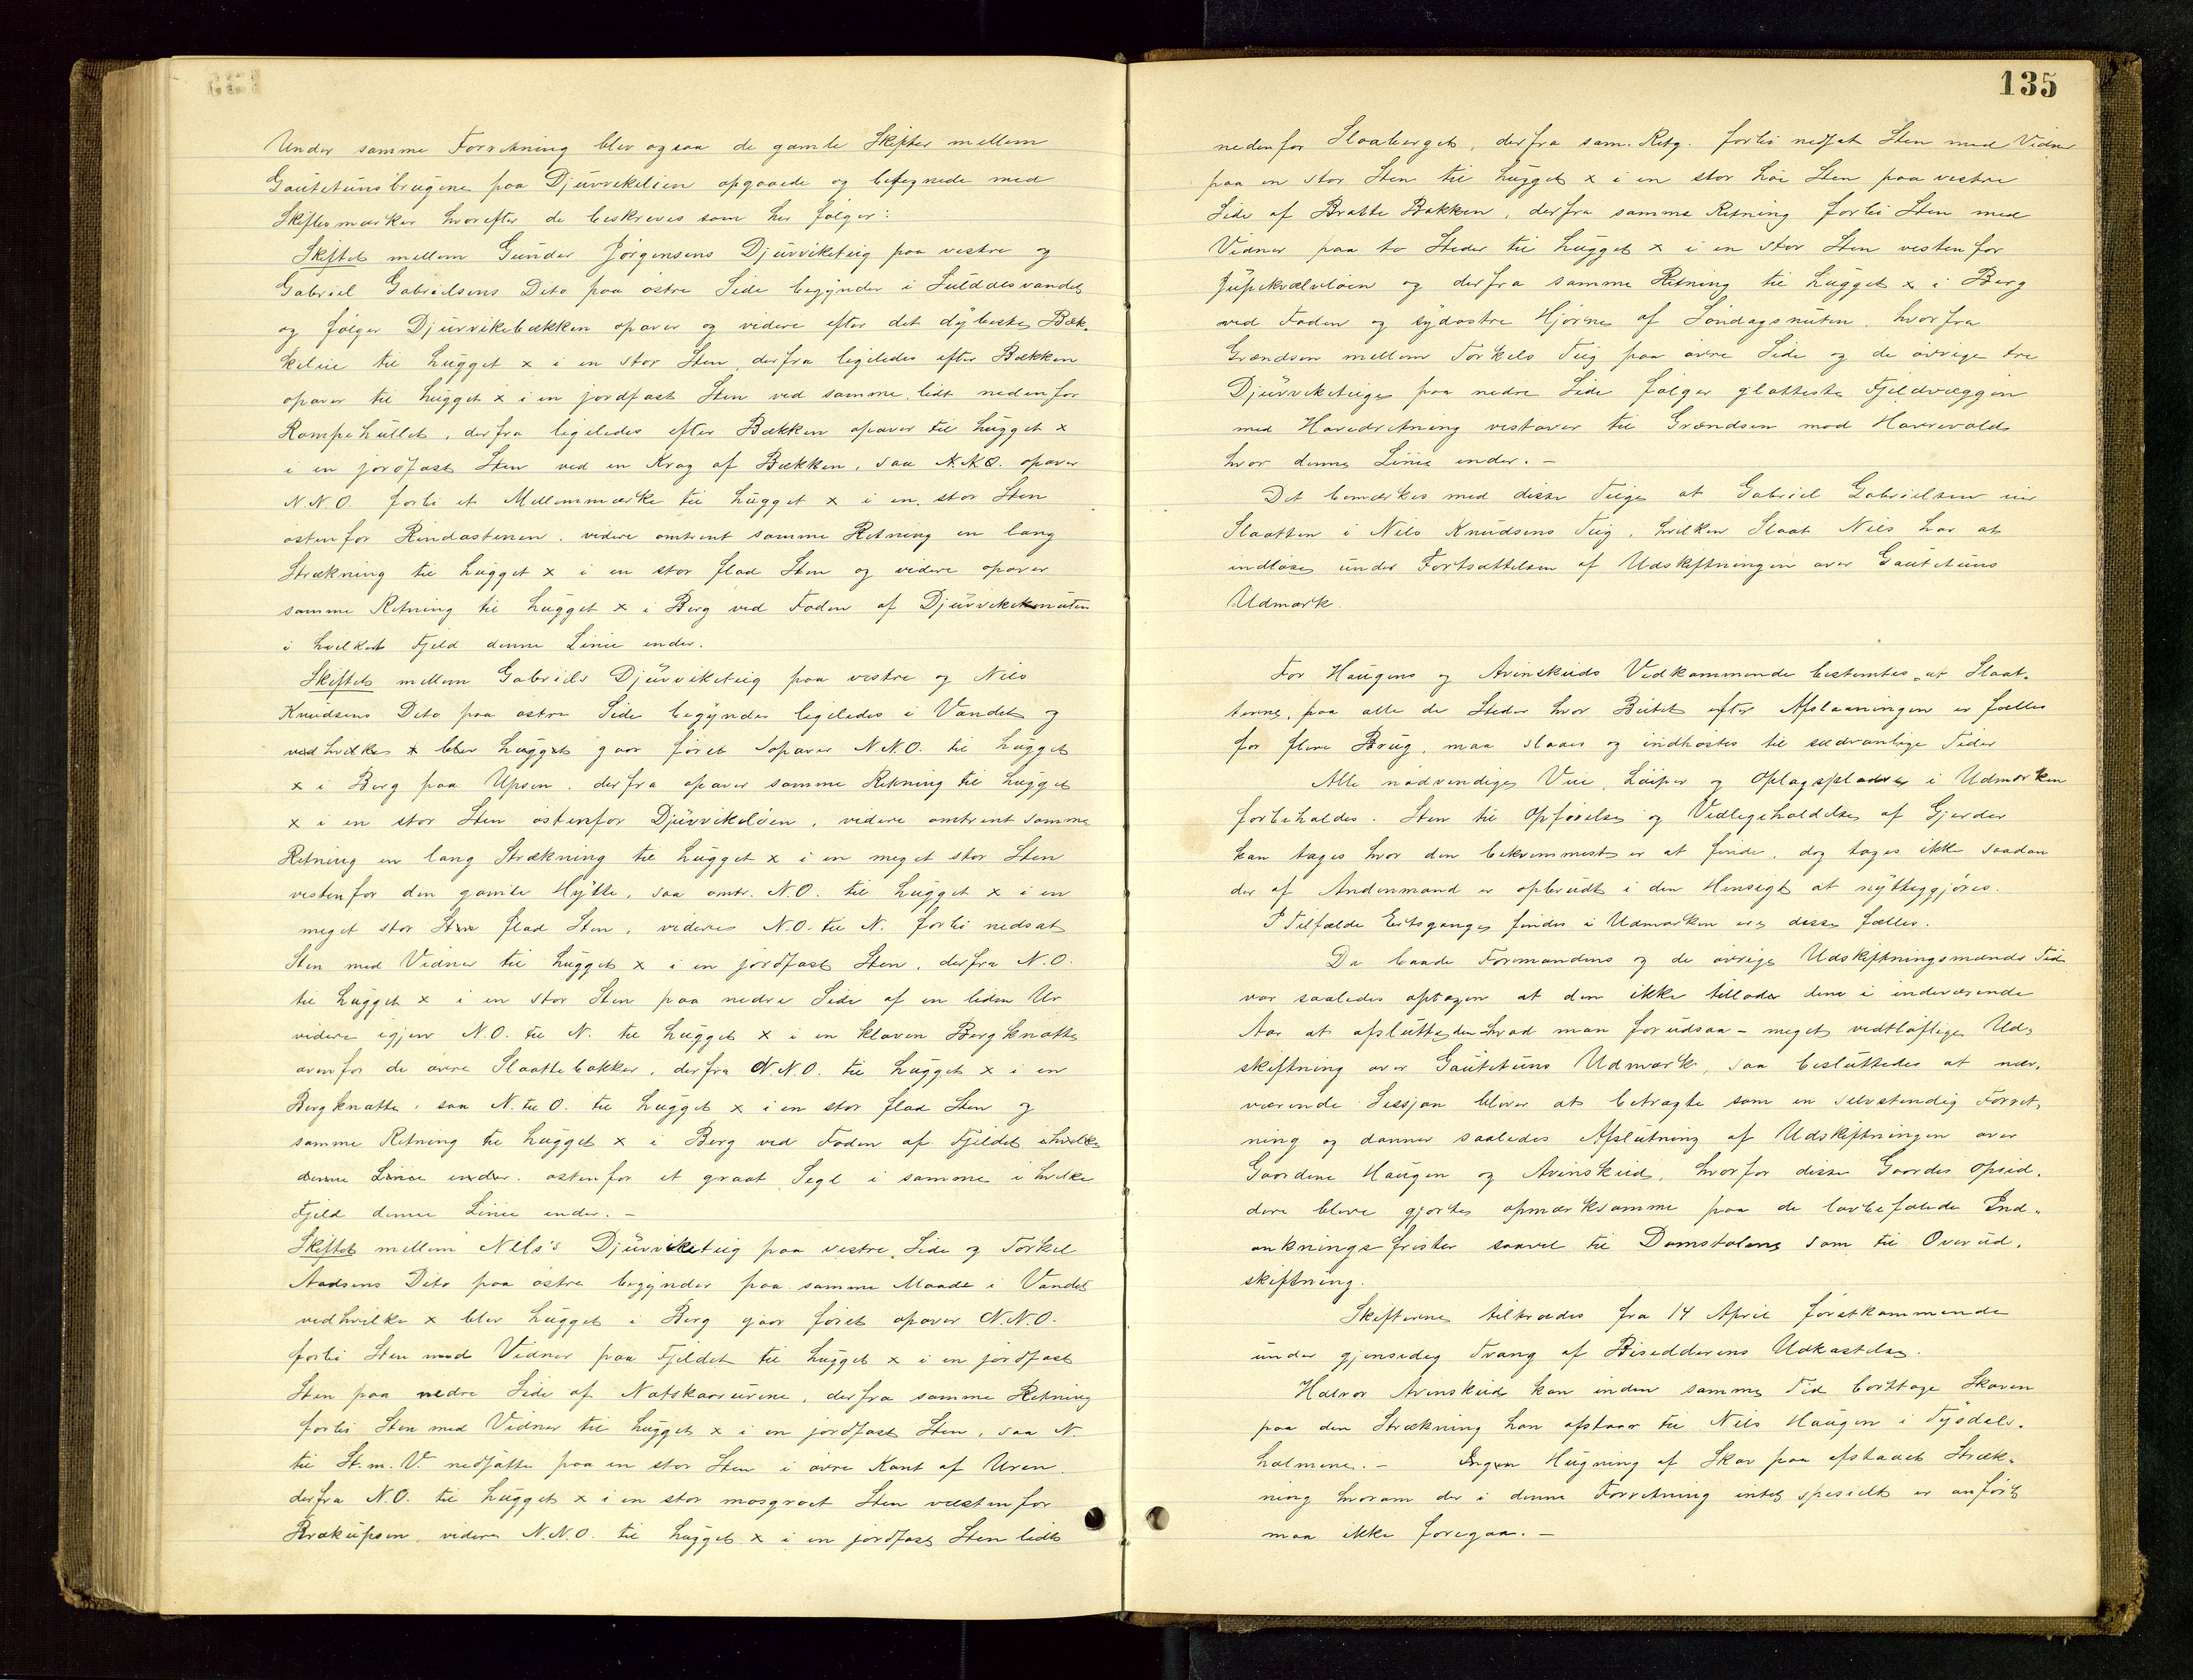 Under samme Forretning blev ogsaa de gamle Skifter mellem
Gautetunsbrugene paa Djuvvekelien opgaaede og betegnede med
Skiftesmærker hvorefter de beskreves som her følger:
Skiftet mellem Gunder Jørgensens Djuvviketeig paa vestre og
Gabriel Gabrielsens Dito paa østre Side begynder i Suldalsvandet
og følger Djuvvikebækken opover og videre efter det dybeste Bæk-
keleie til hugget x i en stor Sten, derfra ligeledes efter Bækken
opover til hugget x i en jordfast Sten ved samme, lidt nedenfor
Rompehullet, derfra ligeledes efter Bækken opover til hugget x
i en jordfast Sten ved en Krog af Bækken, saa N.N.O. opover
N.N.O. forbi et Mellemmærke til hugget x i en stor Sten
østenfor Rindastenen, videre omtrent samme Retning en lang
Strækning til hugget x i en stor flad Sten og videre opover
samme Retning til hugget x i Berg ved Foden af Djuvvekeknuten
i hvilket Fjeld denne Linie ender.
Skiftet mellem Gabriels Djuvviketeig paa vestre og Nils
Knudsens Dito paa østre Side begynder ligeledes i Vandet og
ved hvilke x blev hugget gaar først opover N.N.O. til hugget
x i Berg paa Upsen, derfra opover samme Retning til hugget
x i en stor Sten østenfor Djuvvikeløen, videre omtrent samme
Retning en lang Strækning til hugget x i en meget stor Sten
vestenfor den gamle Hytte, saa omtr. N.O. til hugget x i en
meget stor Sten flad Sten, videre N.O. til N. forbi nedsat
Sten med Vidner til hugget x i en jordfast Sten, derfra N.O.
til hugget x i en stor Sten paa nedre Side af en liden Ur
videre igjen N.O. til N. til hugget x i en kløven Bergknatte
ovenfor de øvre Slaattebakker, derfra N.N.O. til hugget x i en
Bergknatte, saa N. til O. til hugget x i en stor flad Sten og
samme Retning til hugget x i Berg ved Foden af Fjeldet i hvilke
denne Linie ender. østenfor et graat Segl i samme i hvilke
Fjeld denne Linie ender. –
Skiftet mellem Nils's Djuvviketeig paa vestre Side og Torkel
Aadsens Dito paa østre begynder paa samme Maade i Vandet
ved hvilke x blev hugget i Berg gaar først opover N.N.O.
forbi Sten med Vidner paa Fjeldet til hugget x i en jordfast
Sten paa nedre Side af Natskaarurene, derfra samme Retning
forbi Sten med Vidner til hugget x i en jordfast Sten, saa N.
til St. m. V. nedsatte paa en stor Sten i øvre Kant af Uren
derfra N.O. til hugget x i en stor mosgroet Sten vestenfor
Brækupsen, videre N.N.O. til hugget x i en jordfast Sten lidt
135
nedenfor Slaaberget, derfra sam. Retg. forbi nedsat Sten med Vidner
paa en stor Sten til hugget x i en stor høi Sten paa vestre
Side af Bratte Bakken, derfra samme Retning forbi Sten med
Vidner paa to Steder til hugget x i en stor Sten vestenfor
Jupekvælvløen og derfra samme Retning til hugget x i Berg
ved Foden og sydøstre Hjørne af Søndagsnuten, hvorfra
Grændsen mellem Torkels Teig paa øvre Side og de øvrige tre
Djuvviketeige paa nedre Side følger glatteste Fjeldvæggen
med Hovedretning vestover til Grændsen mod Havrevold
hvor denne Linie ender. –
Det bemærkes med disse Teige at Gabriel Gabrielsen eier
Slaatten i Nils Knudsens Teig, hvilken Slaat Nils har at
indløse under Fortsættelsen af Udskiftningen over Gautetuns
Udmark.
For Haugens og Avinskeids Vedkommende bestemtes, at Slaat-
terne, paa alle de Steder hvor Beitet efter Afslaaningen er fælles
for flere Brug, maa slaaes og indhøstes til sædvanlige Tider
Alle nødvendige Veie, Løiper og Oplagspladse i Udmarken
forbeholdes. Sten til Opførelse og Vedligeholdelse af Gjerder
kan tages hvor den bekvemmest er at finde, dog tages ikke saadan
der af Andenmand er opbrudt i den Hensigt at nyttiggjøres.
I Tilfælde Ertsgange findes i Udmarken ere disse fælles.
Da baade Formandens og de øvrige Udskiftningsmænds Tid
var saaledes optagen at den ikke tillader dem i indeværende
Aar at afslutte den hvad man forudsaa – meget vidtløftige Ud-
skiftning over Gautetuns Udmark, saa besluttedes at nær-
værende Session bliver at betragte som en selvstendig Forret-
ning og danner saaledes Afslutning af Udskiftningen over
Gaardene Haugen og Avinskeid, hvorfor disse Gaardes Opsid-
dere bleve gjorte opmærksomme paa de lovbefalede Ind-
ankningsfrister saavel til Domstolene som til Overud-
skiftning.
Skifterne tiltrædes fra 14 April førstkommende
under gjensidig Tvang af Bisidderens Udkastelse.
Halvor Avinskeid kan inden samme Tid borttage Skoven
paa den Strækning han afstaar til Nils Haugen i Tysdals-
holmene. – Ingen Hugning af Skov paa afstaaet Stræk-
ning hvorom der i denne Forretning intet spesielt er anført
maa ikke foregaa. –